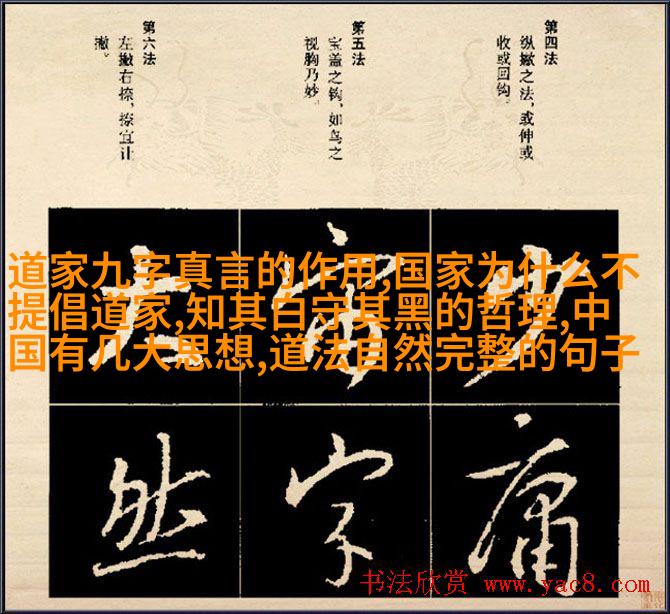 第四法
纵撇之法，或伸或
收或回钩。
第五法
宝盖之钩，如鸟之
视胸乃妙。
第六法
左撇右捺，捺宜让
撇。
道家九字真言的作用,国家为什么不
提倡道家,知其白守其黑的哲理,中
国有几大思想,道法自然完整的句子
少 庸
宫 字
大 然
书法欣赏 www.yac8.com